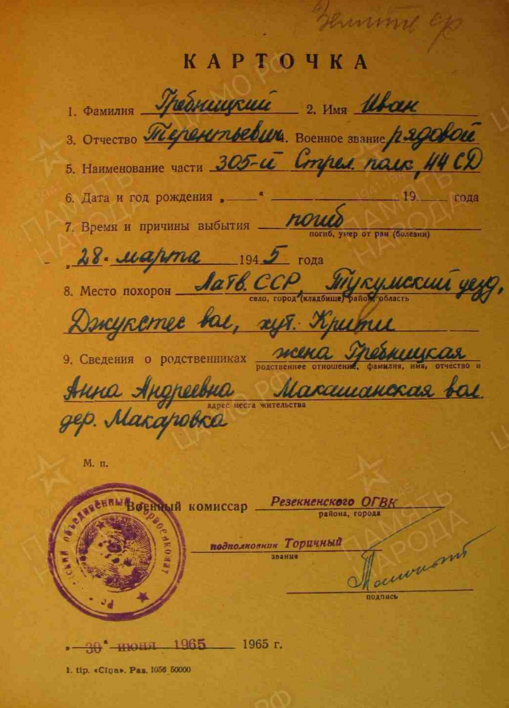 Земите ср
КАРТОЧКА
1. Фамилия Гребницкий 2. Имя Иван
3. Отчество Терентьевич. Военное звание рядовой
5. Наименование части 305-й Стрел. полк, 44 СД
6. Дата и год рождения „ “ 19 года
7. Время и причины выбытия погиб
погиб, умер от ран (болезни)
„28. марта 1945 года
8. Место похорон Латв. ССР, Тукумский уезд,
село, город (кладбище) район, область
Джукстес вол, хут. Крити
9. Сведения о родственниках жена Гребницкая
родственное отношение, фамилия, имя, отчество и
Анна Андреевна Макашанская вол.
адрес места жительства
дер. Макаровка
М. п.
Военный комиссар Резекненского ОГВК
района, города
подполковник Торичный
звание
подпись
„30“ июня 1965 1965 г.
1. tip. «Cīņa». Pas. 1056 50000
ПАМЯТЬ НАРОДА
ЦАМО РФ